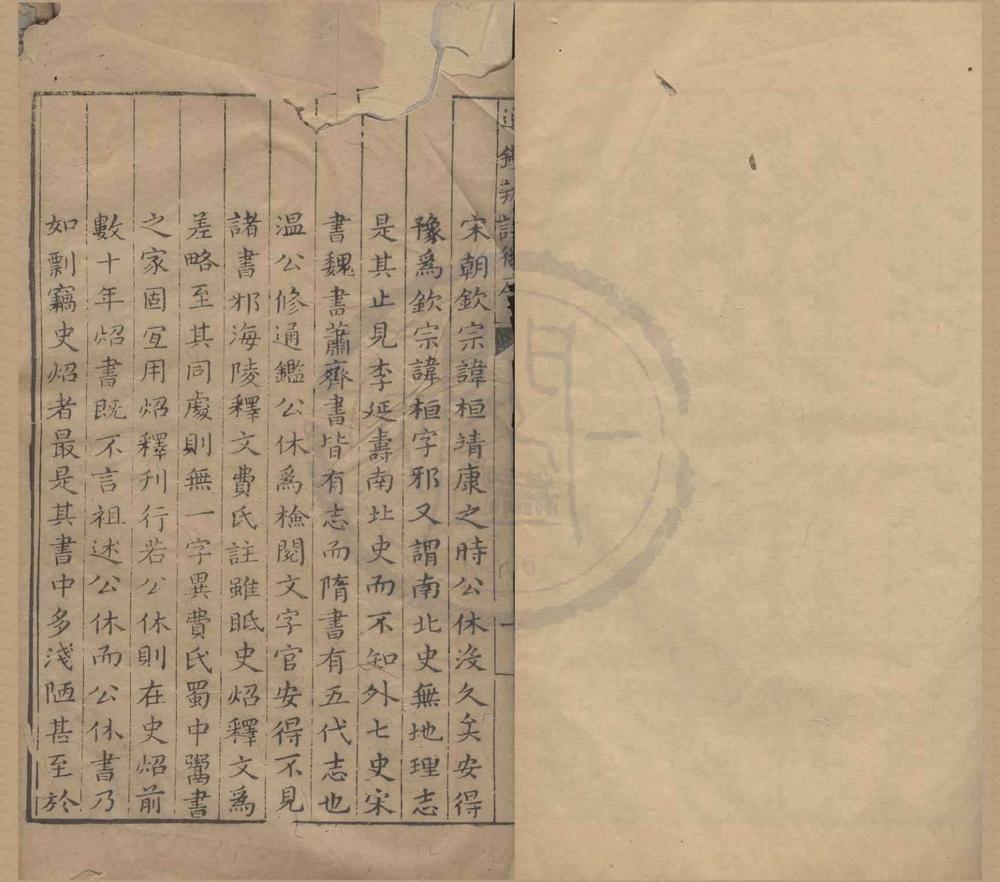 通鑑釋誤後序
宋朝欽宗諱桓靖康之時公休没久矣安得
豫爲欽宗諱桓字邪又謂南北史無地理志
是其止見李延壽南北史而不知外七史宋
書魏書蕭齊書皆有志而隋書有五代志也
温公修通鑑公休爲檢閱文字官安得不見
諸書邪海陵釋文費氏註雖眂史炤釋文爲
差略至其同處則無一字異費氏蜀中鬻書
之家固宜用炤釋刋行若公休則在史炤前
數十年炤書既不言祖述公休而公休書乃
如剽竊史炤者最是其書中多淺陋甚至於